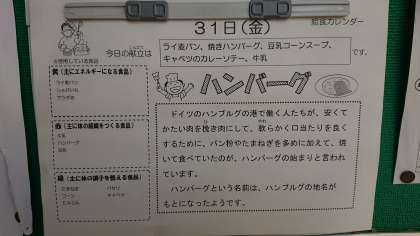 31日(金)
給食カレンダー
今日の献立は
ライ麦パン、焼きハンバーグ、豆乳コーンスープ、
キャベツのカレーソテー、牛乳
です。
☆使用している食品
黄(主にエネルギーになる食品)
ライ麦パン
じゃがいも
サラダ油
赤(主に体の組織をつくる食品)
牛乳
ハンバーグ
豆乳
緑(主に体の調子を整える食品)
たまねぎ パセリ
コーン キャベツ
にんじん
ハンバーグ
ドイツのハンブルグの港で働く人たちが、安くて
かたい肉を挽き肉にして、軟らかく口当たりを良く
するために、パン粉やたまねぎを多めに加えて、焼
いて食べていたのが、ハンバーグの始まりと言われ
ています。
ハンバーグという名前は、ハンブルグの地名が
もとになったようです。